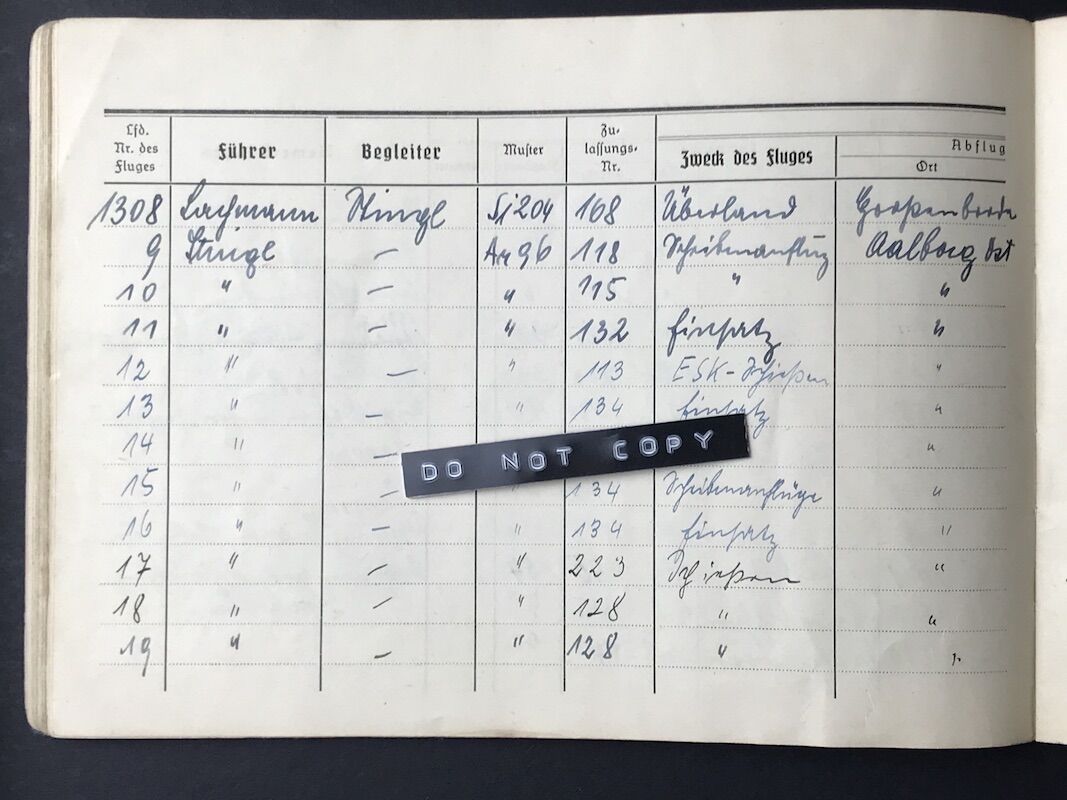 Lfd. Nr. des Fluges Führer Begleiter Muster Zu- lassungs- Nr. Zweck des Fluges Abflug Ort
1308 Lachmann Stingl Si 204 168 Überland Großenbrode
9 Stingl — Ar 96 118 Scheibenanflug Aalborg Ost
10 " — " 115 " "
11 " — " 132 Einsatz "
12 " — " 113 ESK-Schießen "
13 " — " 134 Einsatz "
14 " — "
DO NOT COPY
15 " — " 134 Scheibenanflüge "
16 " — " 134 Einsatz "
17 " — " 223 Schießen "
18 " — " 128 " "
19 " — " 128 "